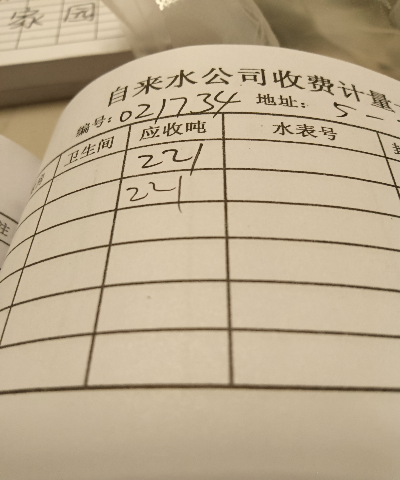 家园
自来水公司收费计量
编号:021734 地址: 5-
卫生间 应收吨 水表号
221
221